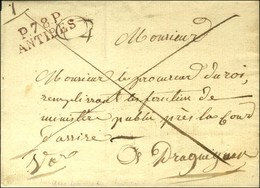 1
P.78.P.
ANTIBES
4
Monsieur
Monsieur le procureur du roi,
remplissant les fonction de
ministere public près la Cour
d'assise
à Draguignan